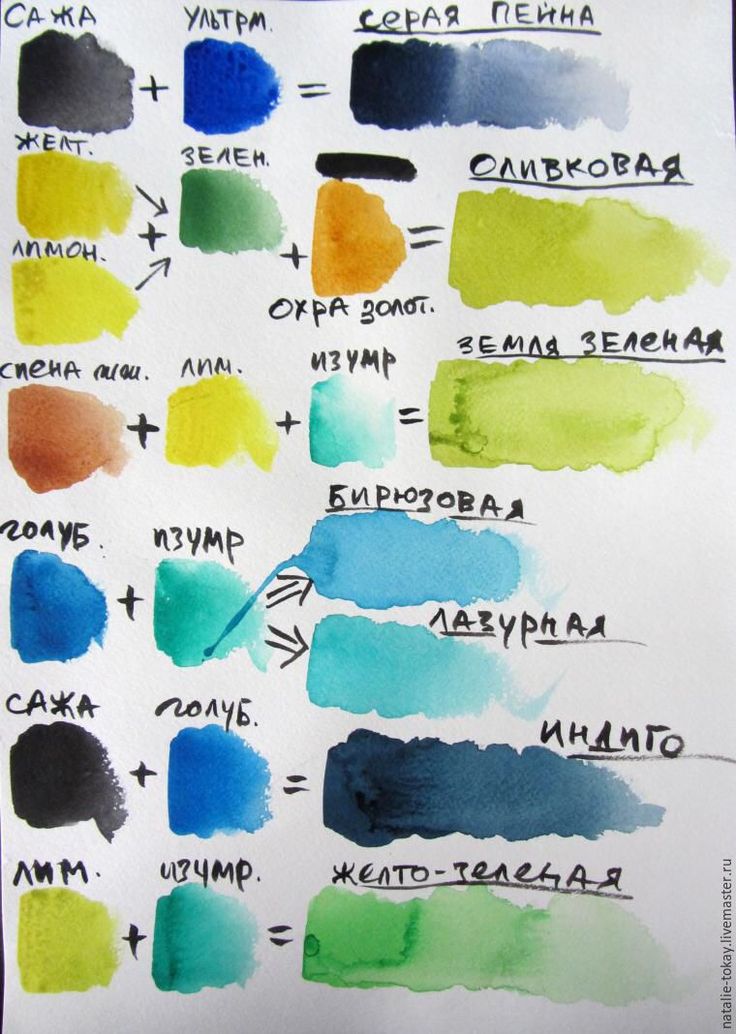 САЖА + УЛЬТРМ. = СЕРАЯ ПЕЙНА
ЖЕЛТ.
ЗЕЛЕН.
ОЛИВКОВАЯ
ЛИМОН.
ОХРА ЗОЛОТ.
ЗЕМЛЯ ЗЕЛЕНАЯ
СИЕНА + ЛИМ. + ИЗУМР =
БИРЮЗОВАЯ
ГОЛУБ. + ИЗУМР
ЛАЗУРНАЯ
САЖА + ГОЛУБ. = ИНДИГО
ЛИМ. + ИЗУМР. = ЖЕЛТО-ЗЕЛЕНАЯ
natalie-tokay.livemaster.ru